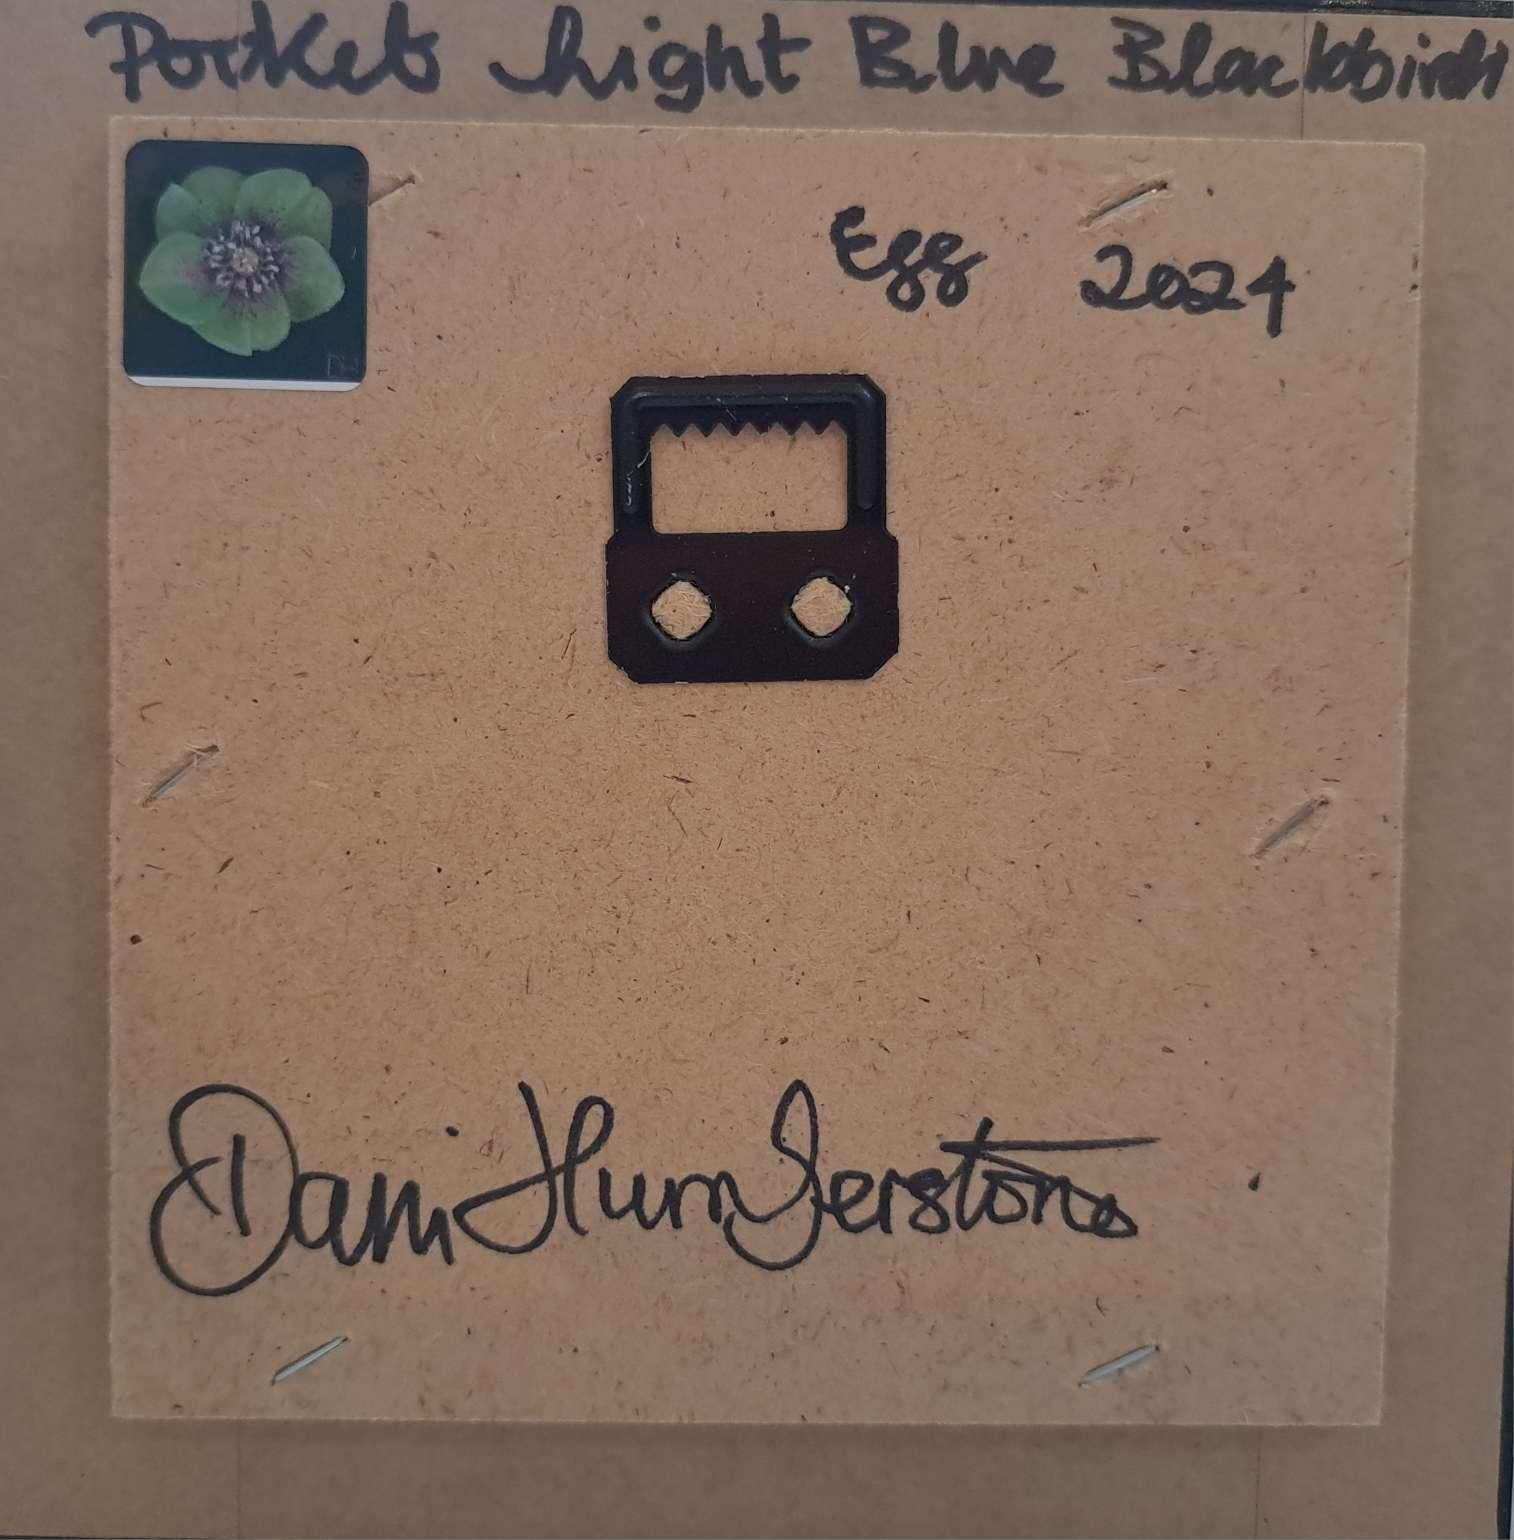 Pocket Light Blue Blackbird
Egg 2024
Dani Humberstone